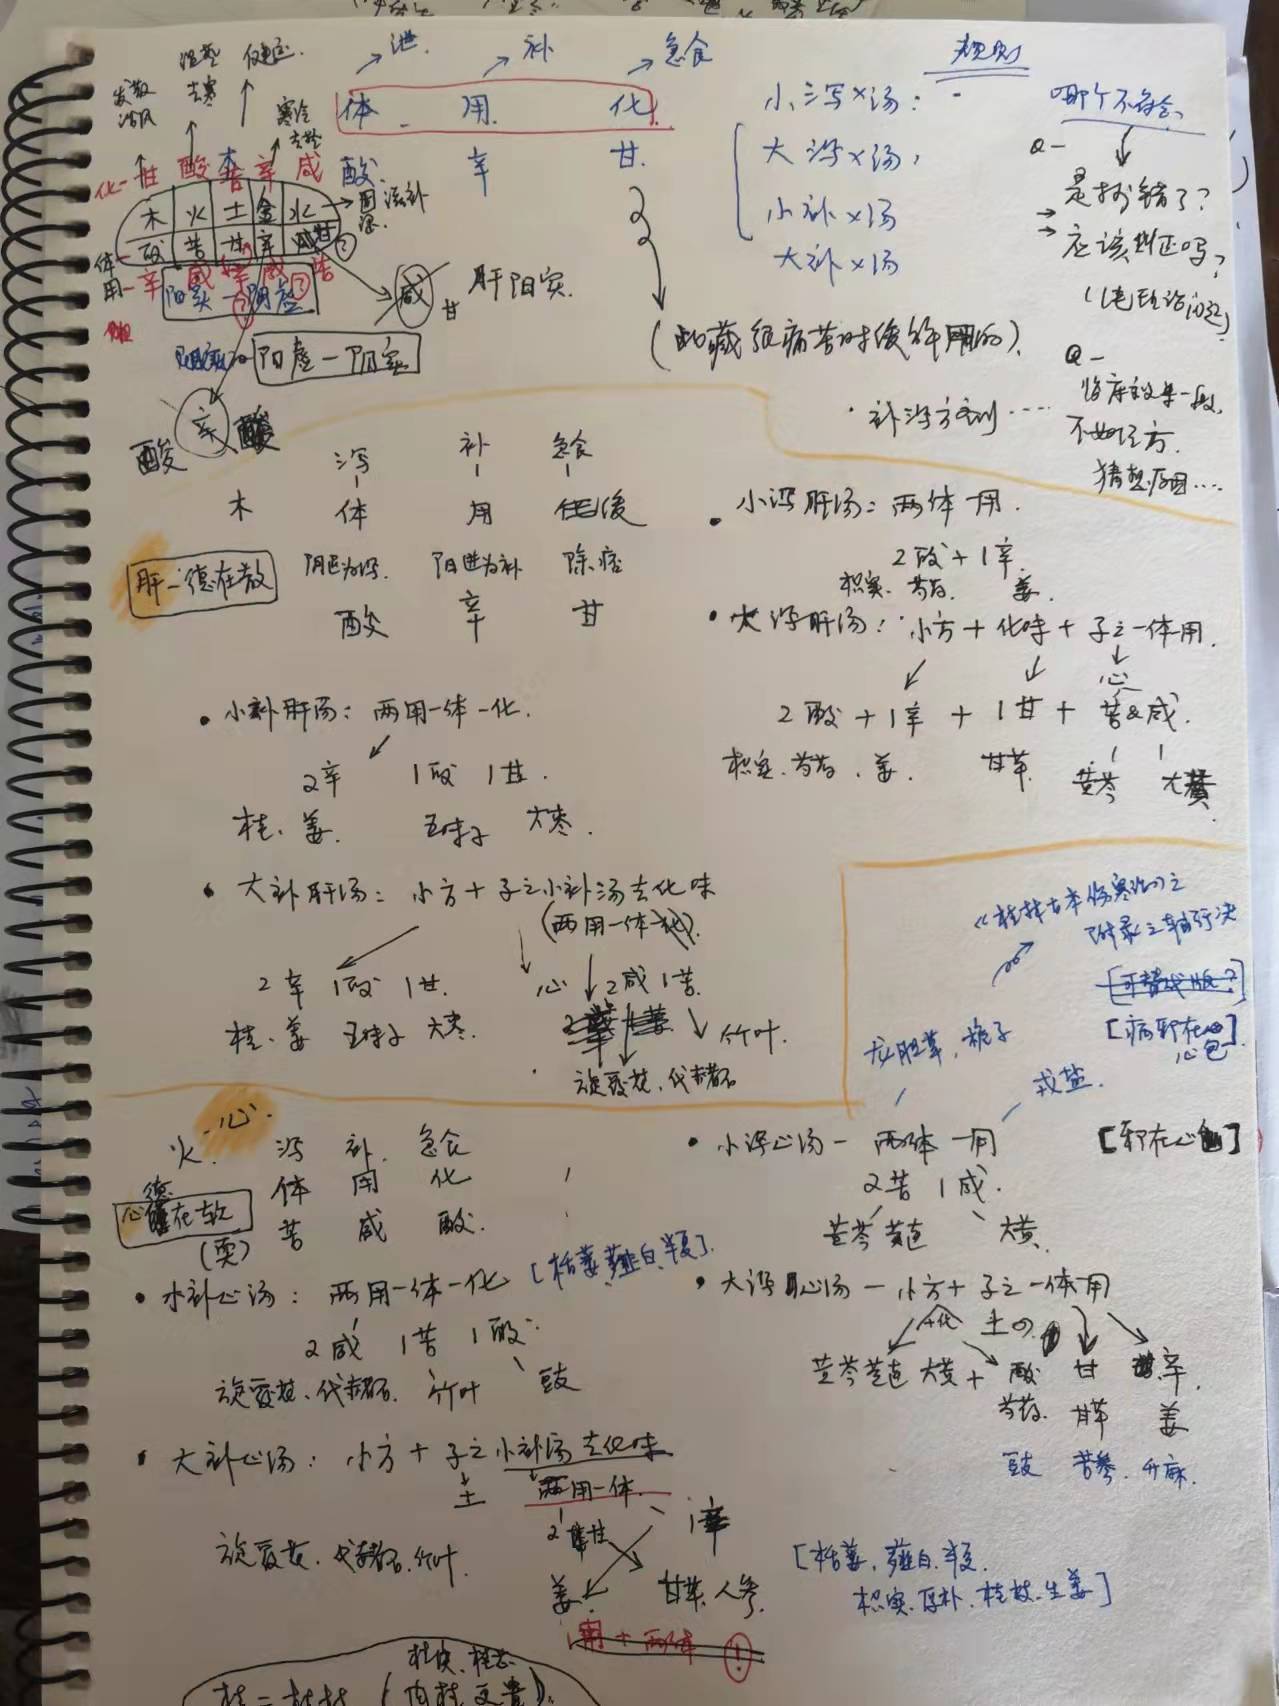 泄 补 急食
体 用 化
酸 辛 甘
规则
小泻×汤：
大泻×汤，
小补×汤
大补×汤
哪个不符合、
Q-
是抄错了？
应该纠正吗？
Q-
临床效果一般，
不如经方.
猜想原因……
发散
温热
去寒
寒冷
化- 甘 酸 苦 辛 咸
木 火 土 金 水
体- 酸 苦 甘 辛
用-
阳实一阴虚
阳虚一阴实
咸 甘 肝阳实.
酸 辛 酸
补泻方剂……
泻 补 急食
木 体 用 化
肝-德在散
阳进为补 除痞
酸 辛 甘
小泻肝汤：两体一用.
2酸+1辛.
枳实、芍药、姜.
大泻肝汤：小方+化味+子之一体用.
心
2酸+1辛+1甘+苦&咸.
枳实、芍药、姜. 甘草. 黄芩 大黄
小补肝汤：两用一体一化.
2辛 1酸 1甘.
桂、姜. 五味子 大枣.
大补肝汤：小方+子之小补汤去化味
2辛 1酸 1甘. 心 2咸 1苦.
桂、姜 五味子 大枣. 竹叶.
旋覆花、代赭石
《桂林古本伤寒论》之
附录之辅行诀
[病邪在心包]
龙胆草，栀子
戎盐.
火-心.
泻 补 急食
体 用 化
苦 咸 酸.
心德在软
(耎)
小泻心汤- 两体一用
2苦 1咸.
黄芩 黄连 大黄
小补心汤：两用一体一化
[栝蒌，薤白，半夏].
2咸 1苦 1酸.
旋覆花、代赭石. 竹叶 豉
大泻心汤-小方+子之一体用
+化 土の
黄芩黄连 大黄+ 酸 甘 辛.
芍药. 甘草 姜
豉 苦参. 升麻.
大补心汤：小方+子之小补汤去化味
土 两用一体.
旋覆花、代赭石、竹叶.
姜. 甘草、人参.
[栝蒌，薤白，半夏.
枳实、厚朴、桂枝、生姜]
1用+两体 !